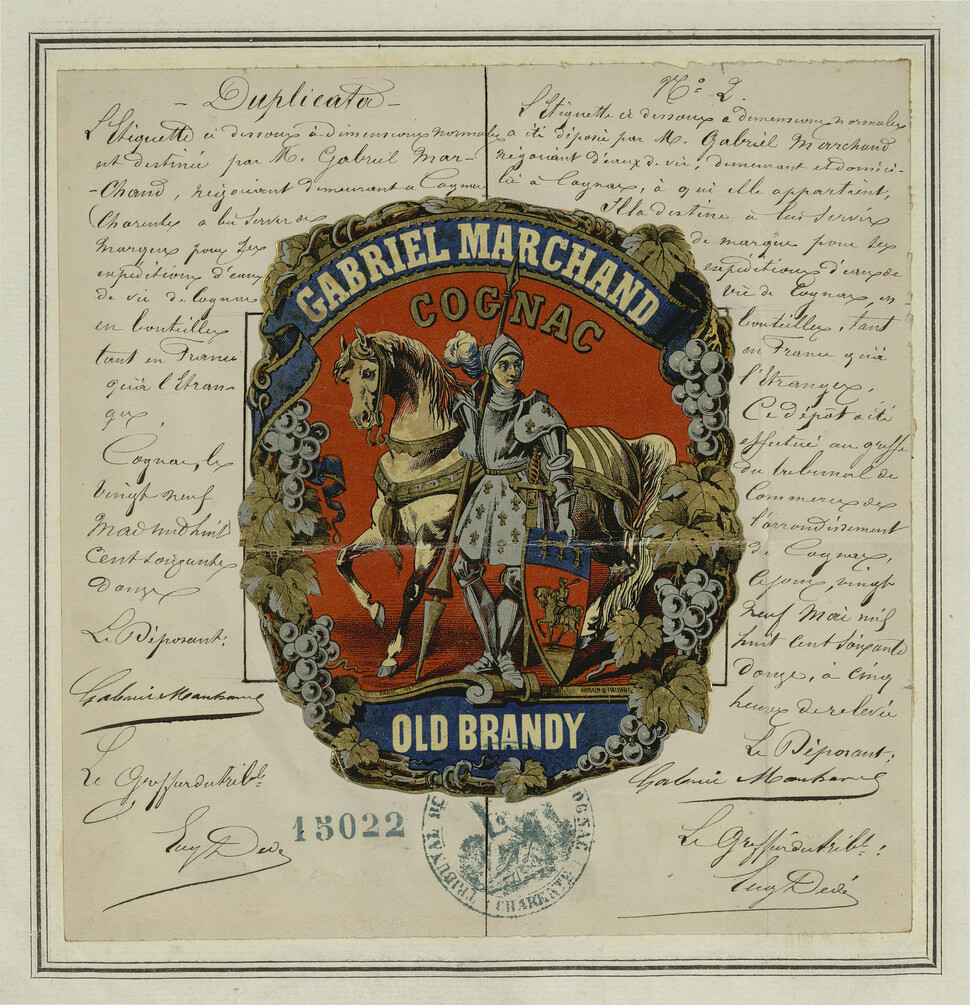 - Duplicata -
L'Etiquette ci dessous à dimensions normales
est destinée par M. Gabriel Mar-
-chand, négociant demeurant à Cognac
Charente à lui servir de
marque pour ses
expéditions d'eaux
de vie de Cognac
en bouteilles
tant en France
qu'à l'Etran-
ger
Cognac, le
vingt neuf
Mai mil huit
cent soixante
douze
Le Déposant:
Gabriel Marchand
Le Greffier du tribal
Eug Dedé
N° 2.
L'Etiquette ci dessous à dimensions normales
a été déposée par M. Gabriel Marchand
négociant d'eaux de vie, demeurant et domici-
lié à Cognac, à qui elle appartient,
Il la destine à lui servir
de marque pour ses
expéditions d'eaux de
vie de Cognac, en
bouteilles, tant
en France qu'à
l'Etranger.
Ce dépôt a été
effectué au greffe
du tribunal de
Commerce de
l'arrondissement
de Cognac,
ce jour, vingt
neuf Mai mil
huit cent soixante
douze, à cinq
heures de relevée
Le Déposant:
Gabriel Marchand
Le Greffier du tribal:
Eug Dedé
GABRIEL MARCHAND
COGNAC
ROMAIN & PALYART
OLD BRANDY
15022
TRIBUNAL DE COGNAC
CHARENTE